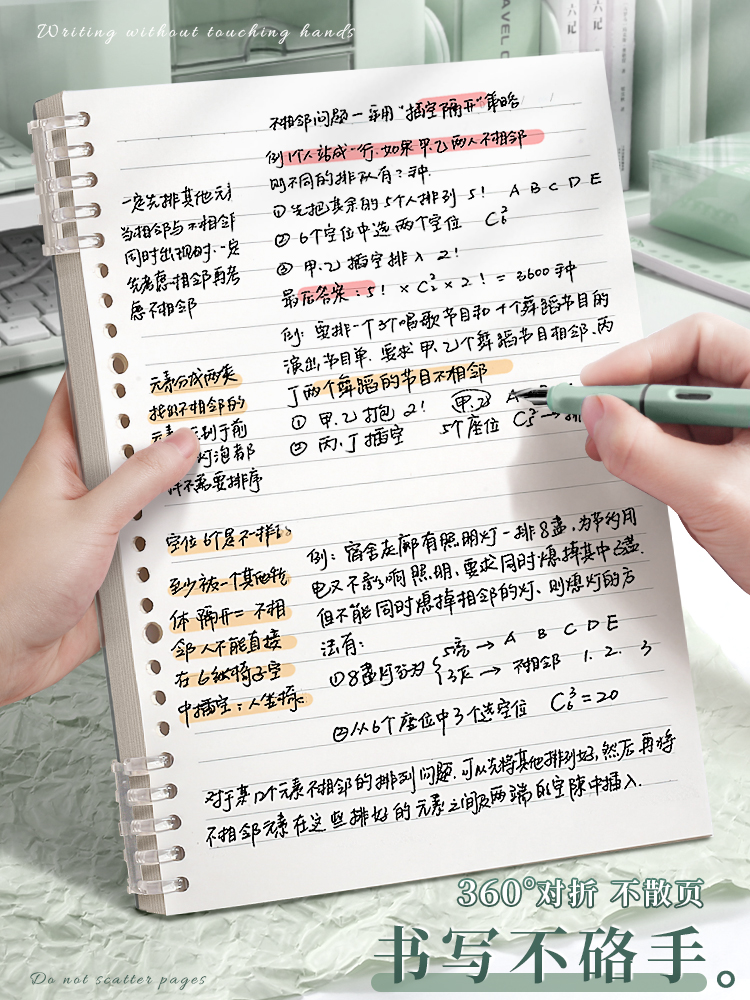 Writing without touching hands
不相邻问题一采用"插空隔开"策略
例 7个人站成一行,如果甲.乙两人不相邻
则不同的排队有?种.
①先把其余的5个人排列 5! A B C D E
②6个空位中选两个空位 C₆²
③甲.乙插空排入 2!
最后答案:5!×C₆²×2!=3600种
例:要排一个3个唱歌节目和4个舞蹈节目的
演出节目单.要求甲.乙2个舞蹈节目相邻、丙
丁两个舞蹈的节目不相邻
①甲.乙打包 2! 甲.乙 A
②丙.丁插空 5个座位
一定先排其他元素
当相邻与不相邻
同时出现时.一定
先考虑相邻再考
虑不相邻
元素分成两类
找出不相邻的
灯泡都
不需要排序
例:宿舍走廊有照明灯一排8盏,为节约用
电又不影响照明,要求同时熄掉其中3盏.
但不能同时熄掉相邻的灯、则熄灯的方
法有:
①8盏灯分为 5亮→A B C D E
3灭→不相邻 1. 2. 3
②从6个座位中3个选空位 C₆³=20
空位6个是不一样的
至少被一个其他物
体隔开=不相
邻人不能直接
在6纵椅子空
中插空:人坐椅.
对于某几个元素不相邻的排列问题.可以先将其他排列好,然后再将
不相邻元素在这些排好的元素之间及两端的空隙中插入.
360°对折 不散页
书写不硌手。
Do not scatter pages